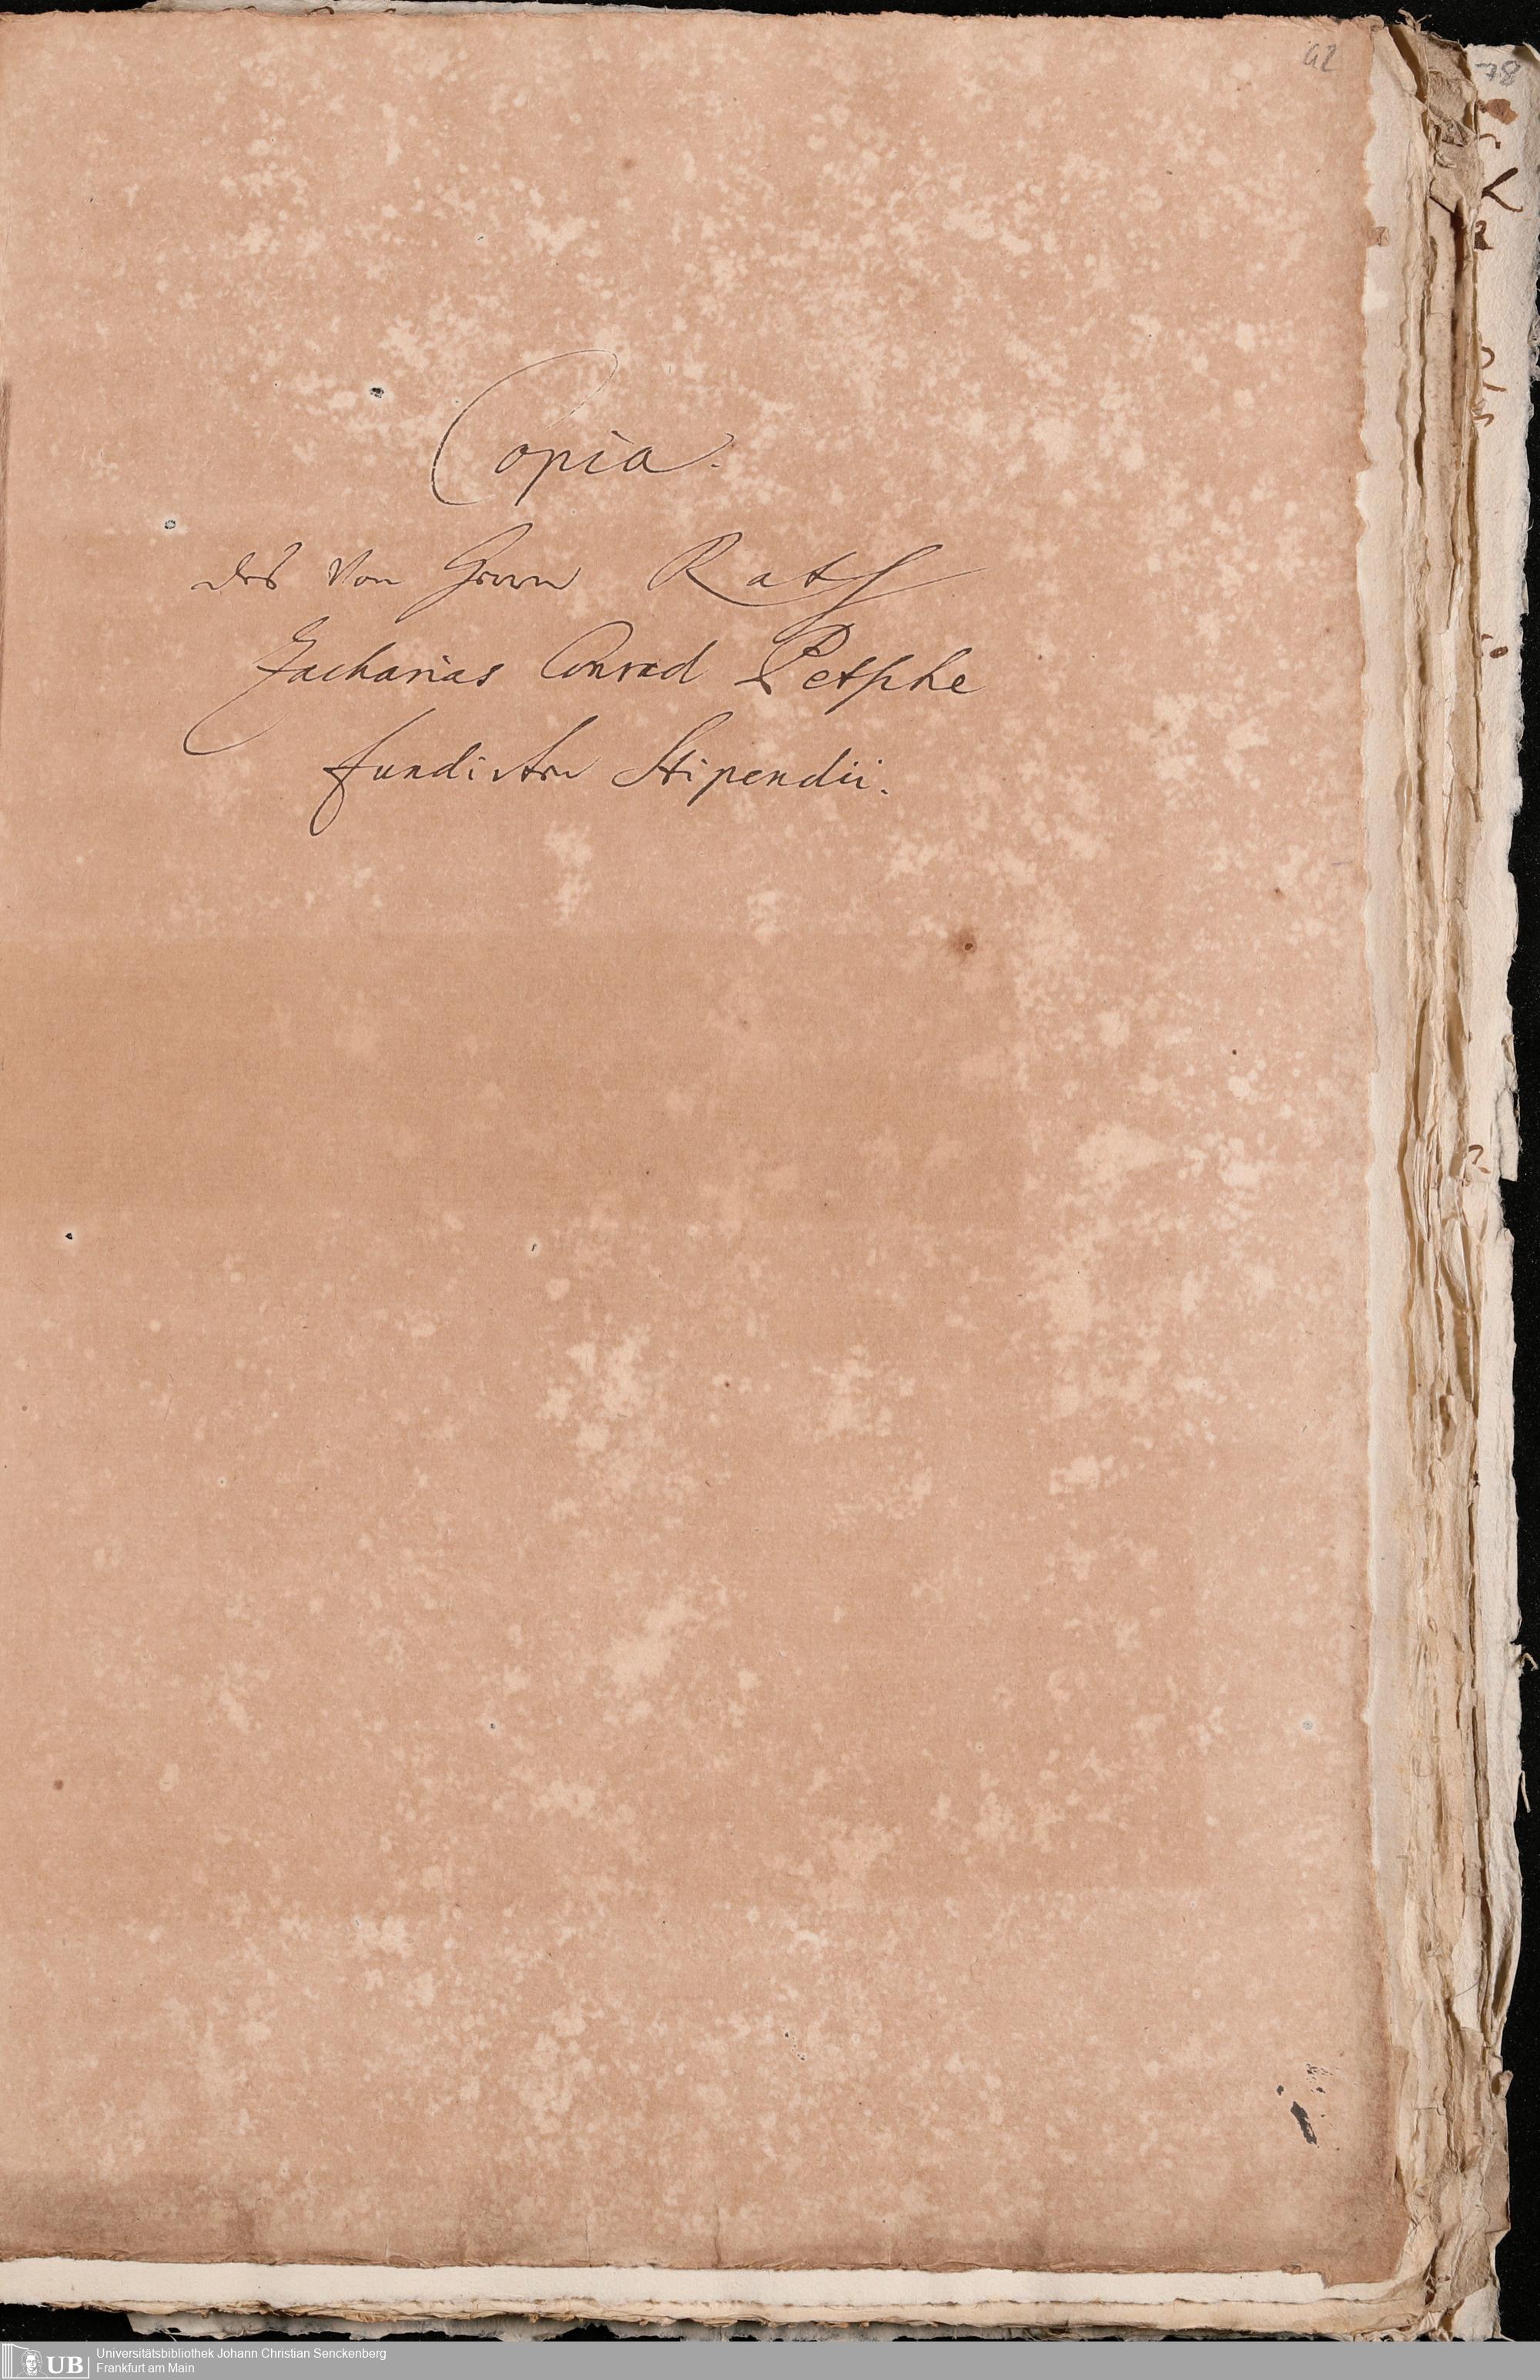 42
78
Copia.
des von Herrn Rath
Zacharias Conrad Petsche
fundirten Stipendii.
UB
Universitätsbibliothek Johann Christian Senckenberg
Frankfurt am Main